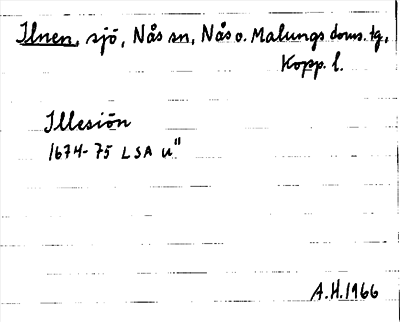 Ilnen, sjö, Nås sn, Nås o. Malungs doms. tg,
Kopp. l.
Illesiön
1674-75 LSA u"
A.H. 1966